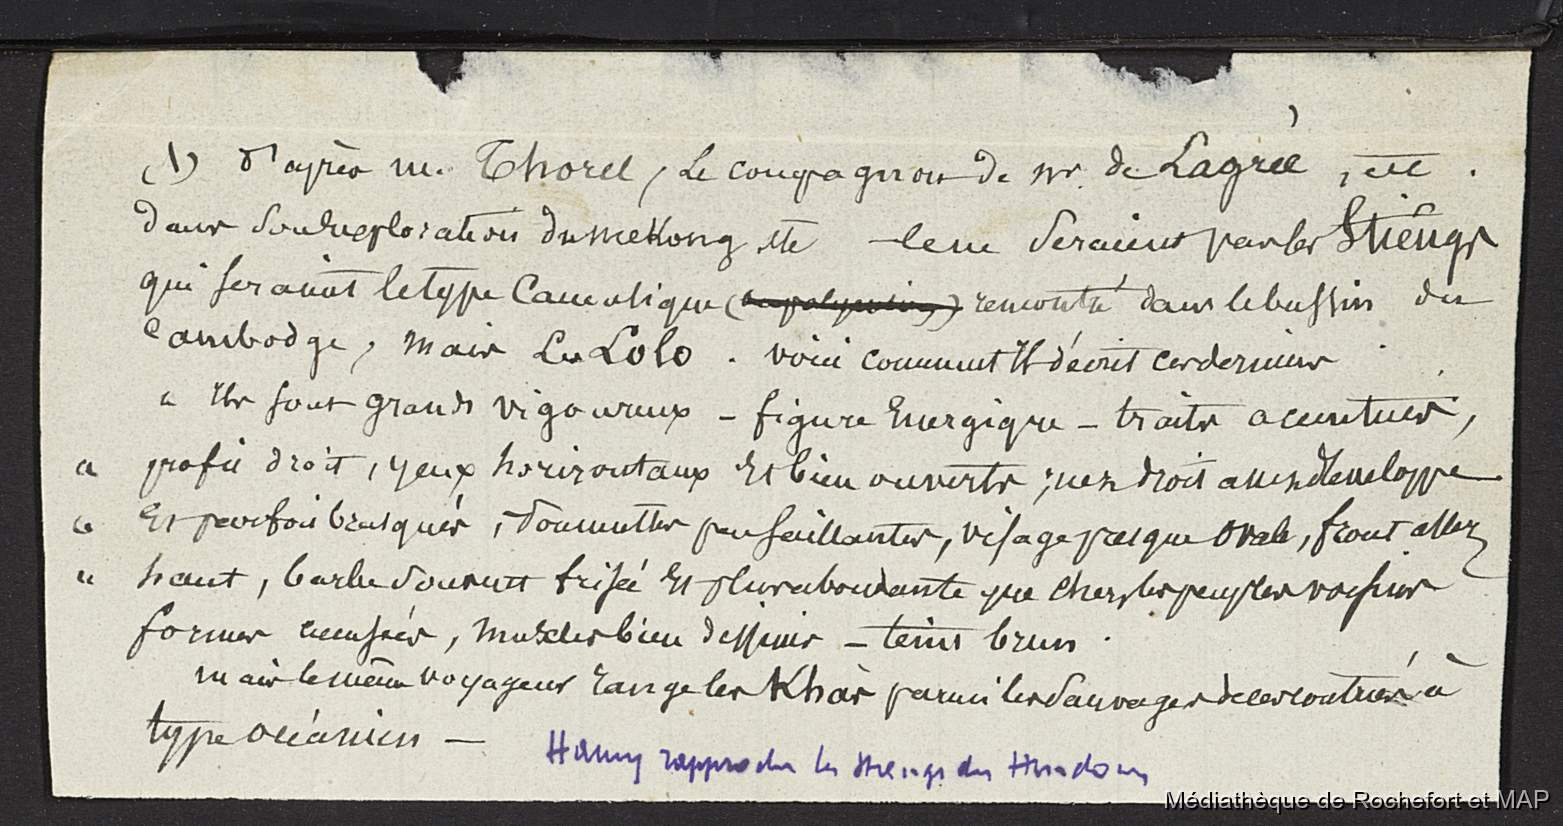 (1) D'après m. Thorel, Le compagnon de Mr. de Lagrée, etc.
dans son exploration du meKong, etc ce ne seraient pas les Stiengs
qui seraient le type Caucasique (la polynésien) remonté dans le bassin du
Cambodge, mais Les Lolo. voici comment Il décrit ces derniers
" Ils sont grands vigoureux – figure Energique – traits accentués,
" profil droit, yeux horizontaux Et bien ouverts, nez droit assez développé
" Et parfois busqués, pommettes peu saillantes, visage presque Ovale, front assez
" haut, barbe souvent frisée Et plus abondante que chez les peuples voisins
formes élancées, Muscles bien dessinés – teint brun.
mais le même voyageur range les Khas parmi les Sauvages de ces contrées à
type océanien –
Hamy rapproche les Stiengs des Hindous
Médiathèque de Rochefort et MAP